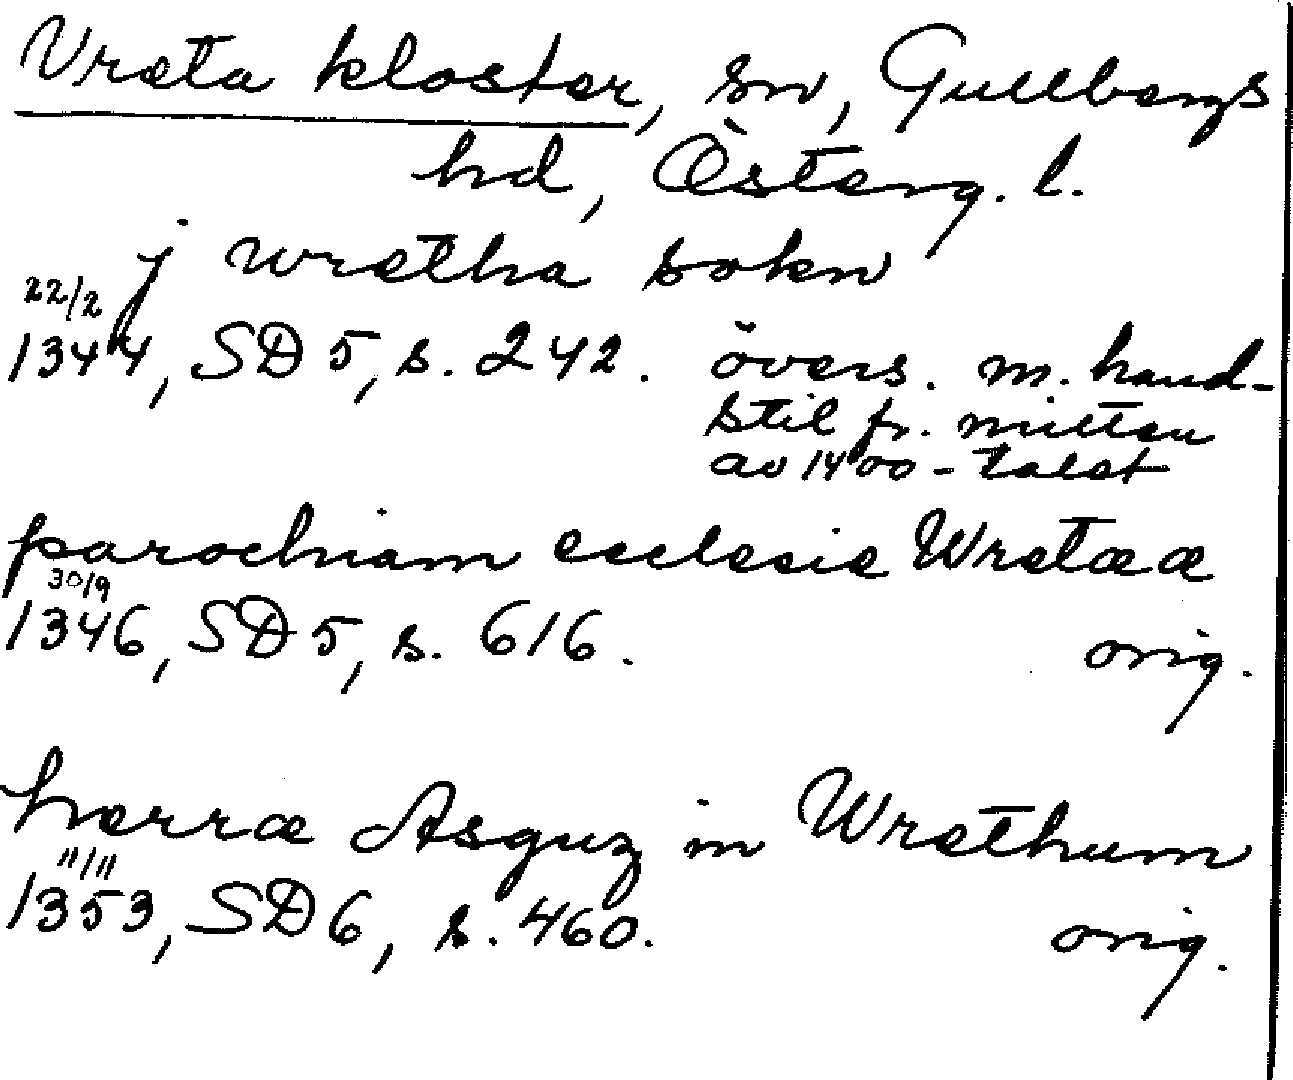 Vreta kloster, sn, Gullbergs
hd, Österg. l.
j wretha sokn
22/2
1344, SD 5, s. 242. övers. m. hand-
stil fr. mitten
av 1400-talet
parochiam ecclesie Wretææ
30/9
1346, SD 5, s. 616. orig.
herræ Asguz in Wrethum
11/11
1353, SD 6, s. 460. orig.